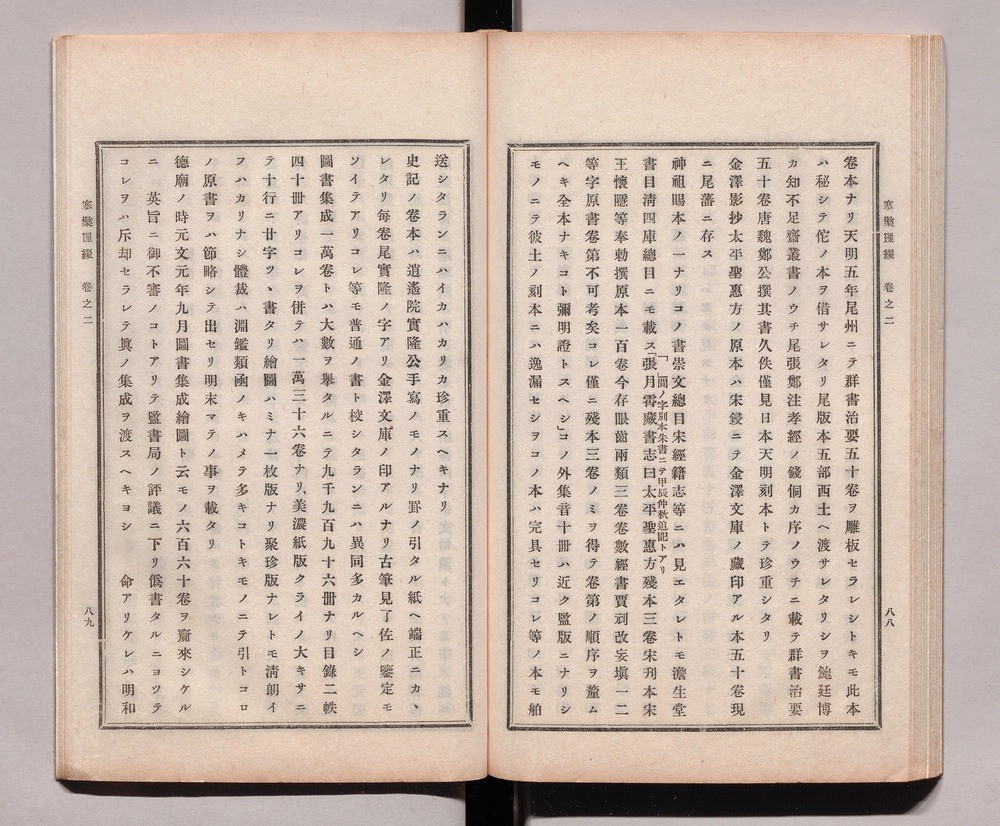 寒檠璅綴　卷之二
八八
卷本ナリ天明五年尾州ニテ群書治要五十卷ヲ雕板セラレシトキモ此本
ハ秘シテ佗ノ本ヲ借サレタリ尾版本五部西土ヘ渡サレタリシヲ鮑廷博
カ知不足齋叢書ノウチ尾張鄭注孝經ノ錢侗カ序ノウチニ載テ群書治要
五十卷唐魏鄭公撰其書久佚僅見日本天明刻本トテ珍重シタリ
金澤影抄太平聖惠方ノ原本ハ宋鋟ニテ金澤文庫ノ藏印アル本五十卷現
ニ尾藩ニ存ス
神祖賜本ノ一ナリコノ書崇文總目宋經籍志等ニハ見エタレトモ澹生堂
「」間ノ字別本朱書ニテ甲辰仲秋追記トアリ
書目淸四庫總目ニモ載ス「張月霄藏書志曰太平聖惠方殘本三卷宋刋本宋
王懷隱等奉勅撰原本一百卷今存眼齒兩類三卷卷數經書賈刓改妄塡一二
等字原書卷第不可考矣コレ僅ニ殘本三卷ノミヲ得テ卷第ノ順序ヲ釐ム
ヘキ全本ナキコト彌明證トスヘシ」コノ外集音十冊ハ近ク監版ニナリシ
モノニテ彼土ノ刻本ニハ逸漏セシヲコノ本ハ完具セリコレ等ノ本モ舶
送シタランニハイカハカリカ珍重スヘキナリ
史記ノ卷本ハ逍遙院實隆公手寫ノモノナリ罫ノ引タル紙ヘ端正ニカヽ
レタリ每卷尾實隆ノ字アリ金澤文庫ノ印アルナリ古筆見了佐ノ鑒定モ
ソイテアリコレ等モ普通ノ書ト校シタランニハ異同多カルヘシ
圖書集成一萬卷トハ大數ヲ擧タルニテ九千九百九十六冊ナリ目錄二帙
四十冊アリコレヲ併テハ一萬三十六卷ナリ、美濃紙版クライノ大キサニ
テ十行ニ廿字ツヽ書タリ繪圖ハミナ一枚版ナリ聚珍版ナレトモ淸朗イ
フハカリナシ體裁ハ淵鑑類函ノキハメテ多キコトキモノニテ引トコロ
ノ原書ヲハ節略シテ出セリ明末マテノ事ヲ載タリ
德廟ノ時元文元年九月圖書集成繪圖ト云モノ六百六十卷ヲ齎來シケル
ニ　英旨ニ御不審ノコトアリテ監書局ノ評議ニ下リ僞書タルニヨツテ
コレヲハ斥却セラレテ眞ノ集成ヲ渡スヘキヨシ　　命アリケレハ明和
寒檠璅綴　卷之二
八九